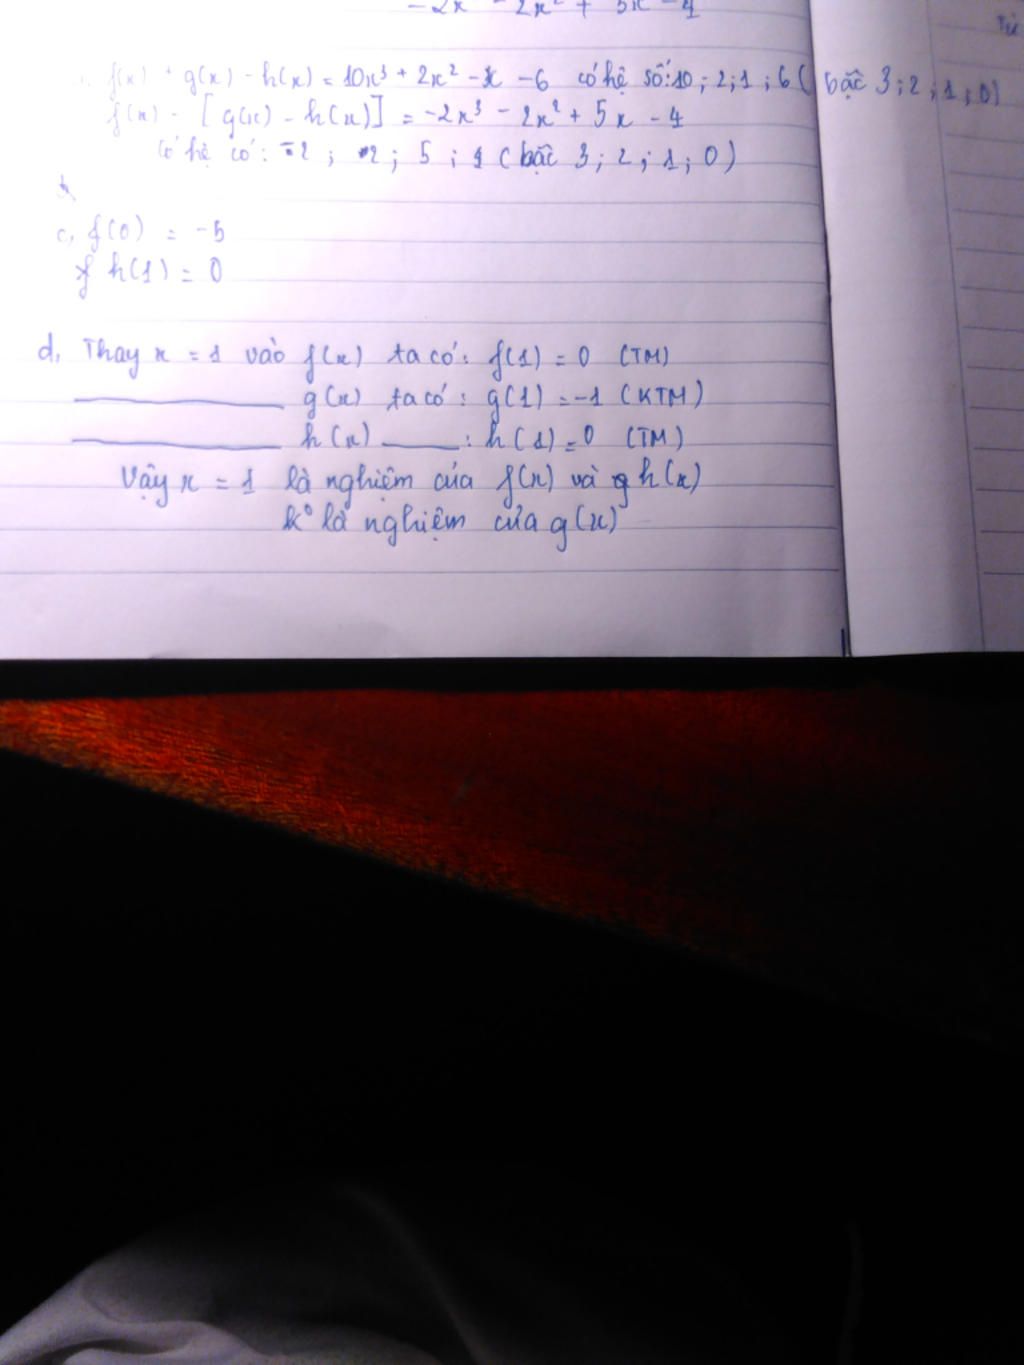 - 2x² + 5x - 4
f(x) + g(x) - h(x) = 10x³ + 2x² - x - 6 có hệ số: 10 ; 2 ; 1 ; 6 ( bậc 3 ; 2 ; 1 ; 0)
f(x) - [g(x) - h(x)] = -2x³ - 2x² + 5x - 4
có hệ có : -2 ; -2 ; 5 ; 4 ( bậc 3 ; 2 ; 1 ; 0 )
c, f(0) = -5
h(1) = 0
d, Thay x = 1 vào f(x) ta có : f(1) = 0 (TM)
g(x) ta có : g(1) = -1 (KTM)
h(x) : h(1) = 0 (TM)
Vậy x = 1 là nghiệm của f(x) và h(x)
k° là nghiệm của g(x)